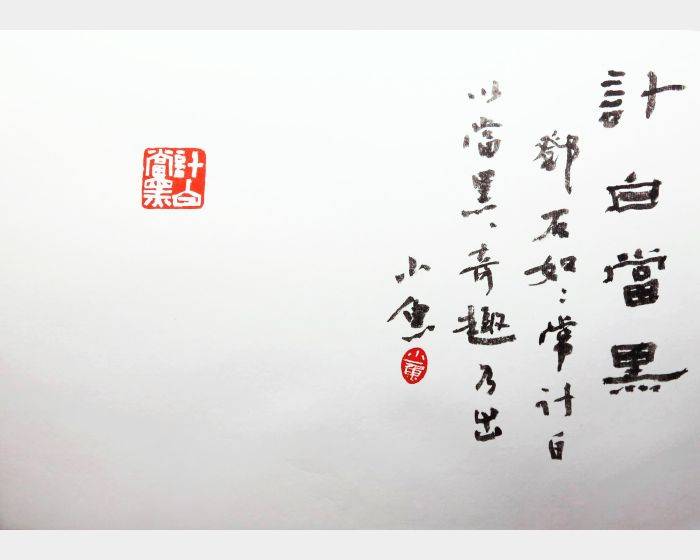 計白當黑
鄧石如：常計白
以當黑、奇趣乃出
小魚
小魚
計白當黑